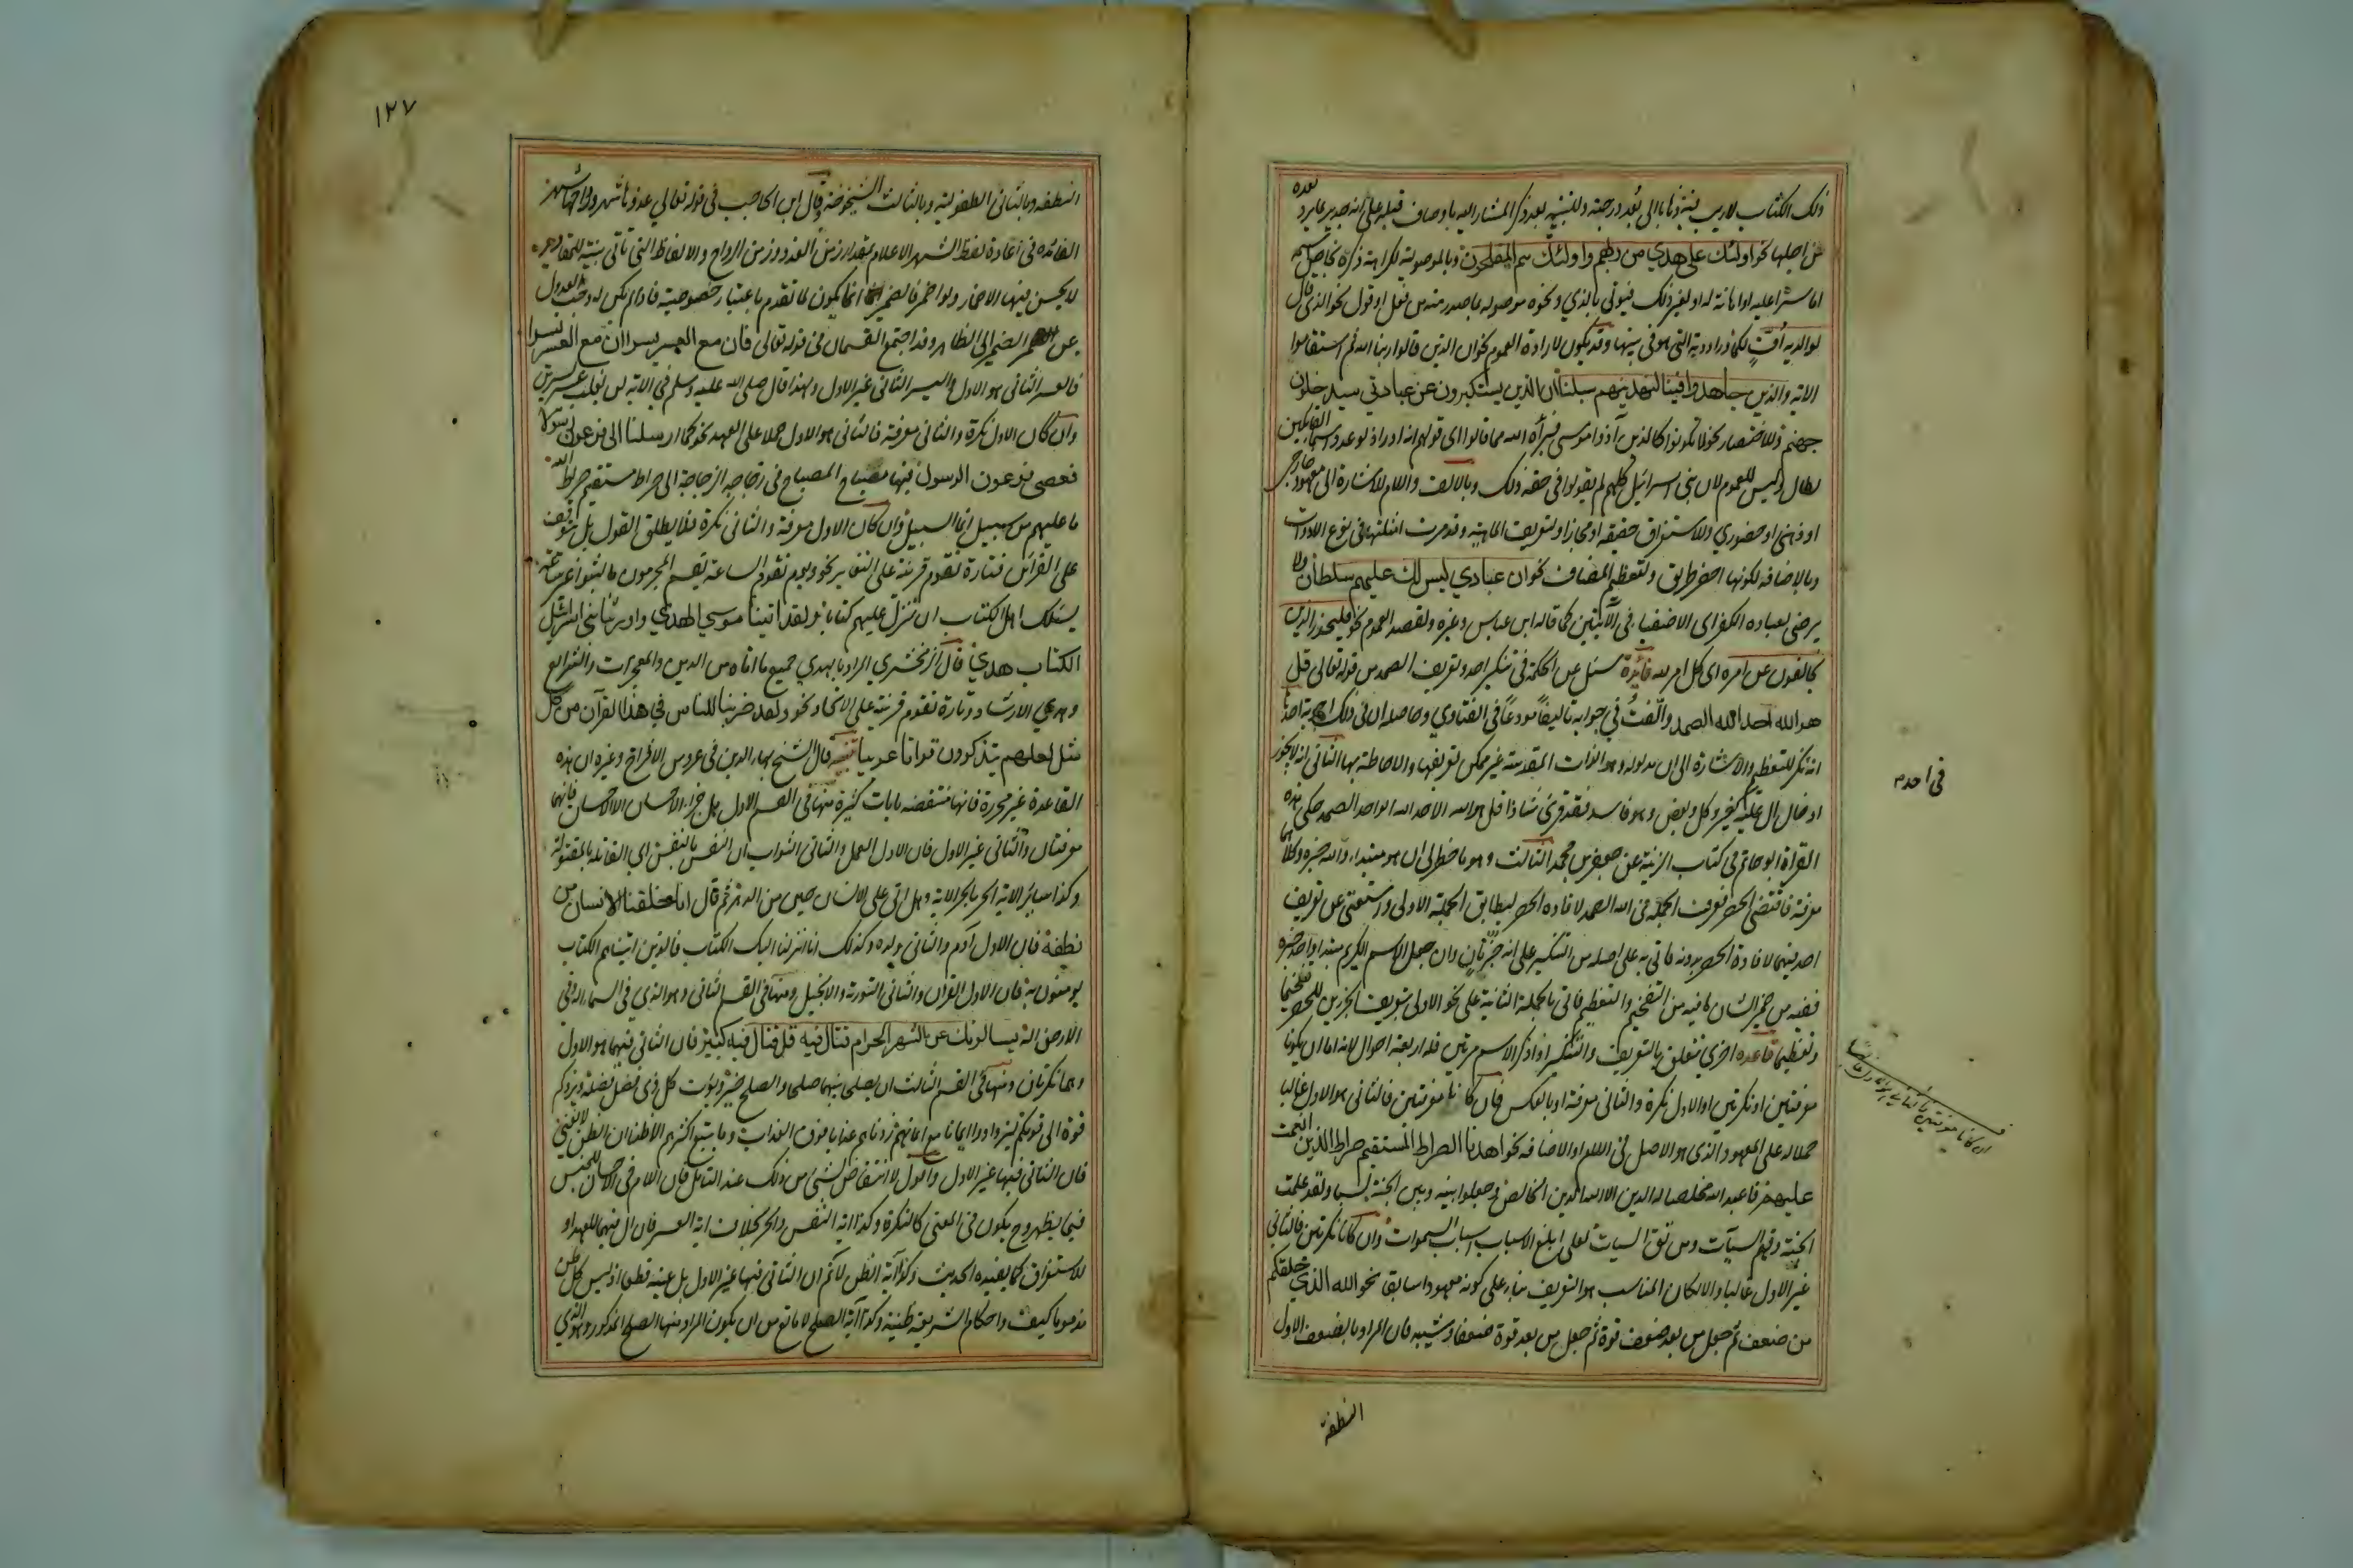 ذلك الكتاب لا ريب فيه ذهابا الى بُعد درجته وللتنبيه بعد ذكر المشار اليه باوصاف قبله على انه جدير بما يرد بعده
من اجلها نحو اولئك على هدي من ربهم واولئك هم المفلحون وبالموصولية لكراهة ذكره بخاص اسمه
اما سترا عليه او اهانة له او لغير ذلك فيوتى بالذي ونحوه موصوله بما صدر منه من فعل او قول نحو والذي قال
لوالديه اُفٍّ لكما وراودته التي هو في بيتها وقد يكون لارادة العموم نحو ان الذين قالوا ربنا الله ثم استقاموا
الاية والذين جاهدوا فينا لنهدينهم سبلنا ان الذين يستكبرون عن عبادتي سيدخلون
جهنم وللاختصار نحو لا تكونوا كالذين آذوا موسى فبرأه الله مما قالوا اى قولهم انه ادر اذ لو عدد اسماء القائلين
لطال وليس للعموم لان بنى اسرائيل كلهم لم يقولوا في حقه ذلك وبالالف واللام للاشارة الى معهود خارجي
او ذهني او حضوري وللاستغراق حقيقه او مجازا ولتعريف الماهية وقد مرت امثلتها في نوع الادوات
وبالاضافه لكونها اخصر طريق ولتعظيم المضاف نحو ان عبادي ليس لك عليهم سلطان ولا
يرضى لعباده الكفر اى الاصفياء في الآيتين كما قاله ابن عباس وغيره ولقصد العموم نحو فليحذر الذين
يخالفون عن امره اى كل امر لله فائدة سئل عن الحكمة في تنكير احد وتعريف الصمد من قوله تعالى قل
هو الله احد الله الصمد والّفتُ في جوابه تاليفًا مودعًا في الفتاوي وحاصله ان في ذلك اجوبة احدها
انه نكر للتعظيم والاشارة الى ان مدلوله وهو الذات المقدسة غير ممكن تعريفها والاحاطة بها الثاني انه لا يجوز
ادخال ال عليه كغير وكل وبعض وهو فاسد فقد قرئ شاذا قل هو الله الاحد الله الواحد الصمد حكى هذه
القراة ابو حاتم في كتاب الزينة عن جعفر بن محمد الثالث وهو ما خطر لي ان هو مبتداء والله خبره وكلاهما
معرفة فاقتضى الحصر فعرف الجملة في الله الصمد لافاده الحصر ليطابق الجملة الاولى واستغنى عن تعريف
احد فيها لافادة الحصر بدونه فاتى به على اصله من التنكير على انه خبر ثانٍ وان جعل الاسم الكريم مبتدا واحد خبره
ففيه من ضمير الشان ما فيه من التفخيم والتعظيم فاتى بالجملة الثانية على نحو الاولى بتعريف الجزئين للحصر تفخيما
وتعظيما قاعده اخرى تتعلق بالتعريف والتنكير اذا ذكر الاسم مرتين فله اربعة احوال لانه اما ان يكونا
معرفتين او نكرتين او الاول نكرة والثاني معرفة او بالعكس فان كانا معرفتين فالثاني هو الاول غالبا
حملا له على المعهود الذى هو الاصل في اللام او الاضافه نحو اهدنا الصراط المستقيم صراط الذين انعمت
عليهم فاعبد الله مخلصا له الدين الا لله الدين الخالص وجعلوا بينه وبين الجنة نسبا ولقد علمت
الجنة وقهم السيآت ومن تق السيات لعلى ابلغ الاسباب اسباب السموات وان كانا نكرتين فالثاني
غير الاول غالبا والا لكان المناسب هو التعريف بناء على كونه معهودا سابقا نحو الله الذي خلقكم
من ضعف ثم جعل من بعد ضعف قوة ثم جعل من بعد قوة ضعفا وشيبه فان المراد بالضعف الاول
النطفة
في احد
١٢٧
النطفه وبالثاني الطفولية وبالثالث الشيخوخة وقال ابن الحاجب في قوله تعالي غدوها شهر ورواحها شهر
الفائده في اعادة لفظ الشهر الاعلام بمقدار زمن الغدو وزمن الرواح والالفاظ التي تاتى مبينة للمقادير
لا يحسن فيها الاضمار ولو اضمر فالضمير انما يكون لما تقدم باعتبار خصوصيته فاذا لم يكن له وجب العدول
عن الضمير الى الظاهر وقد اجتمع القسمان في قوله تعالى فان مع العسر يسرا ان مع العسر يسرا
فالعسر الثاني هو الاول واليسر الثاني غير الاول ولهذا قال صلى الله عليه وسلم في الاية لن يغلب عسر يسرين
وان كان الاول نكرة والثاني معرفة فالثاني هو الاول حملا على العهد نحو كما ارسلنا الى فرعون رسولا
فعصى فرعون الرسول فيها مصباح المصباح في زجاجه الزجاجة الى صراط مستقيم صراط الله
ما عليهم من سبيل انما السبيل وان كان الاول معرفة والثاني نكرة فلا يطلق القول بل يتوقف
على القرائن فتارة تقوم قرينة على التغاير نحو ويوم تقوم الساعة يقسم المجرمون ما لبثوا غير ساعة
يسئلك اهل الكتاب ان تنزل عليهم كتابا ولقد اتينا موسي الهدي واورثنا بني اسرائيل
الكتاب هدي قال الزمخشري المراد بالهدي جميع ما اتاه من الدين والمعجزات والشرايع
وهدي الارشاد وتارة تقوم قرينة على الاتحاد نحو ولقد ضربنا للناس في هذا القرآن من كل
مثل لعلهم يتذكرون قرانا عربيا تنبيه قال الشيخ بهاء الدين في عروس الافراح وغيره ان هذه
القاعدة غير محررة فانها منتقضه بايات كثيرة منها في القسم الاول هل جزاء الاحسان الا الاحسان فانهما
معرفتان والثاني غير الاول فان الاول العمل والثاني الثواب ان النفس بالنفس اى القاتله بالمقتولة
وكذا سائر الاية الحر بالحر الاية وهل اتى على الانسان حين من الدهر ثم قال انا خلقنا الانسان من
نطفة فان الاول آدم والثاني ولده وكذلك انا انزلنا اليك الكتاب فالذين اتيناهم الكتاب
يومنون به فان الاول القرآن والثاني التورية والانجيل ومنها في القسم الثاني وهو الذى في السماء اله وفي
الارض اله يسالونك عن الشهر الحرام قتال فيه قل قتال فيه كبير فان الثاني فيهما هو الاول
وهما نكرتان ومنها في القسم الثالث ان يصلحا بينهما صلحا والصلح خير ويؤت كل ذى فضل فضله ويزدكم
قوة الى قوتكم ليزدادوا ايمانا مع ايمانهم زدناهم عذابا فوق العذاب وما يتبع اكثرهم الا ظنا ان الظن لا يغني
فان الثاني فيها غير الاول واقول لا انتقاض لشئ من ذلك عند التامل فان اللام في الاحسان للجنس
فيما يظهر وح يكون في المعنى كالنكرة وكذا اية النفس والحر بخلاف اية العسر فان ال فيها للعهد او
للاستغراق كما يفيده الحديث وكذا آية الظن لا نم ان الثاني فيها غير الاول بل عينه قطعا اذ ليس كل ظن
مذموما كيف واحكام الشريعة ظنية وكذا آية الصلح لا مانع من ان يكون المراد منها الصلح المذكور وهو الذي